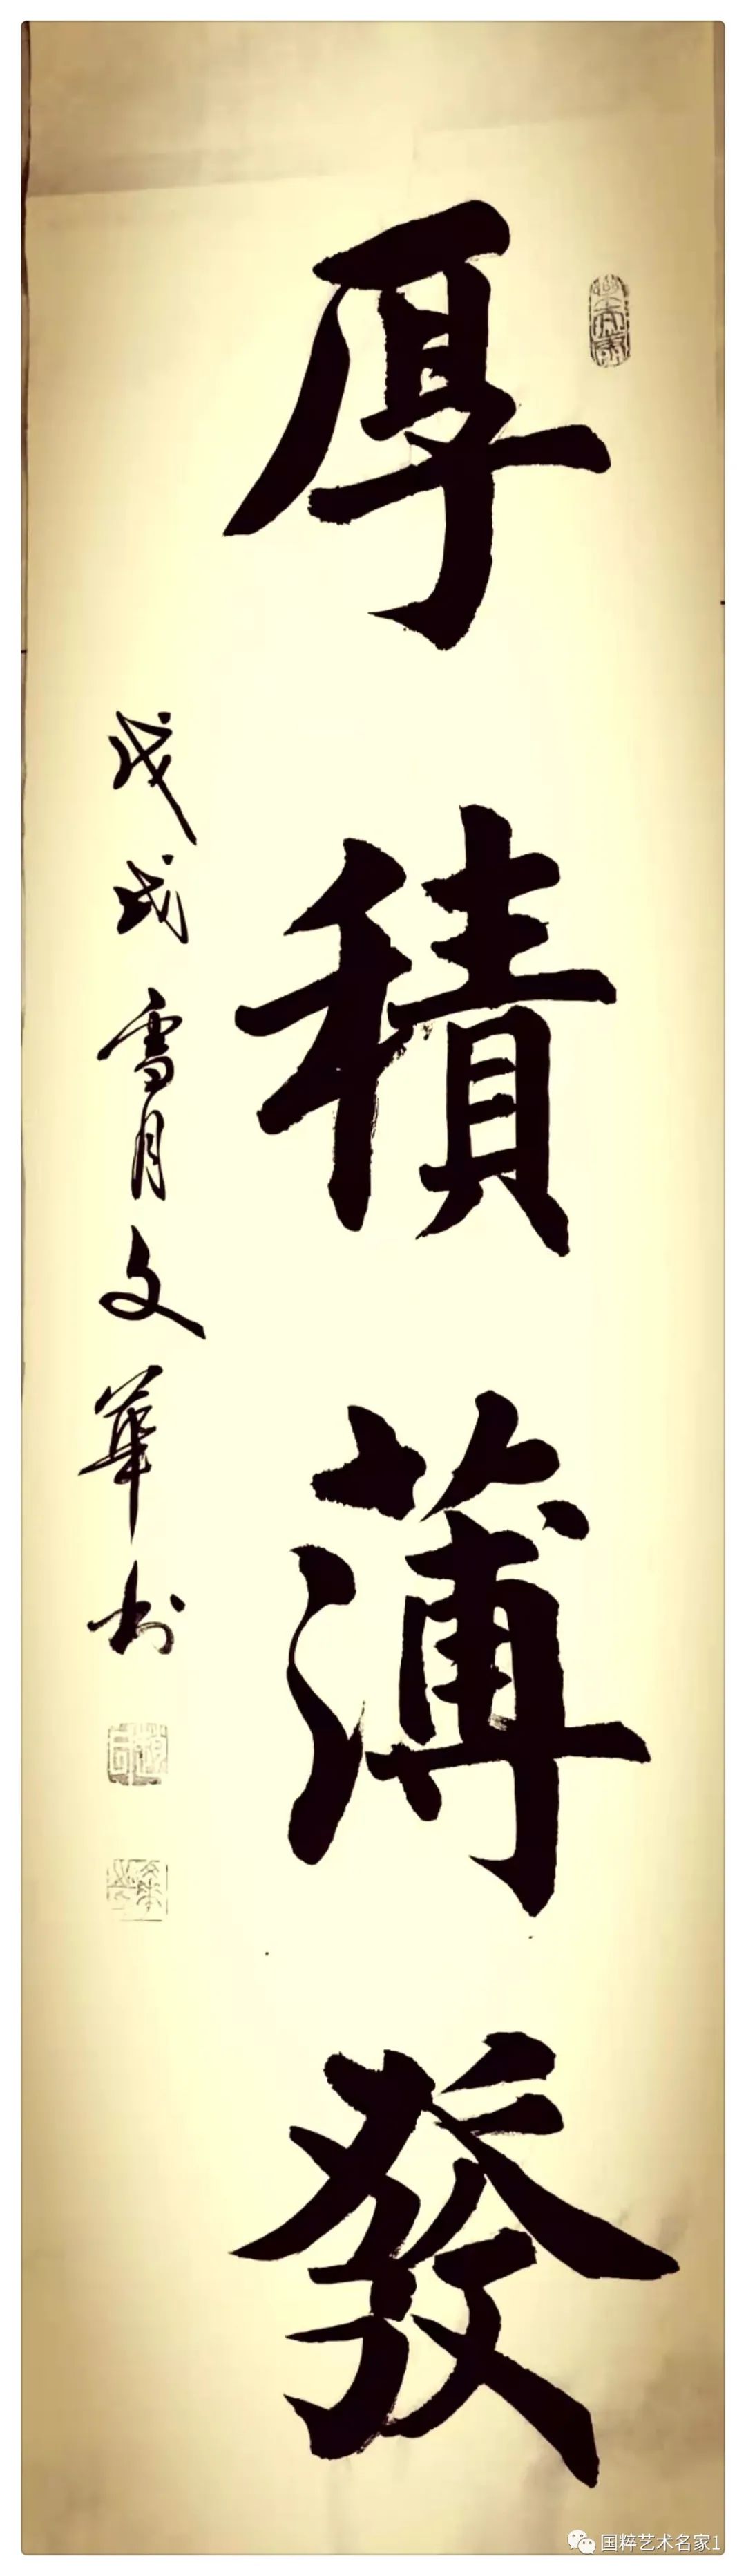 厚積薄發
戊戌雪月文華书
国粹艺术名家1